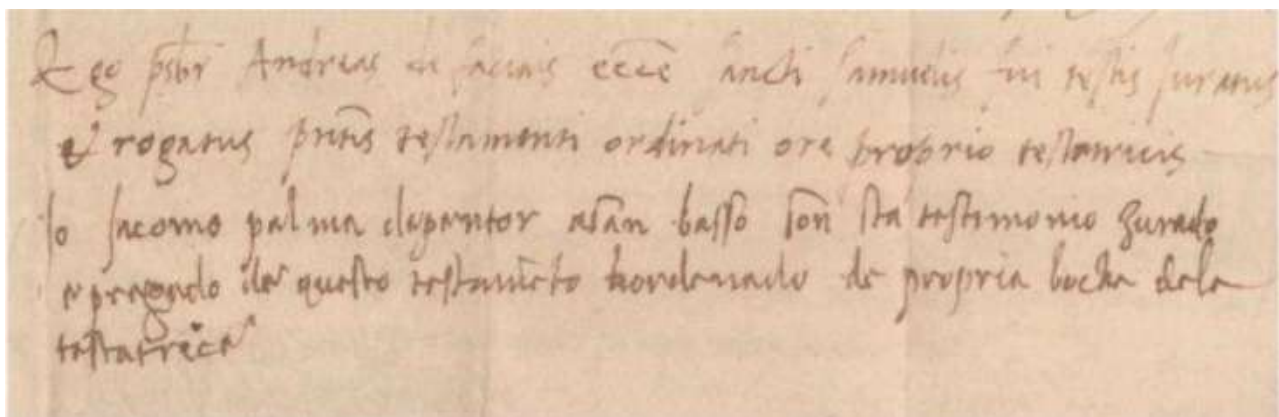 Ego psbr Andreas de saciais ecce sancti samuelis fui testis juratus
et rogatus pntis testamenti ordinati ore proprio testatricis
Io Jacomo palma depentor asan basso son sta testimonio zurado
e pregado de questo testameto hordenado de propria bocha dela
testatrice